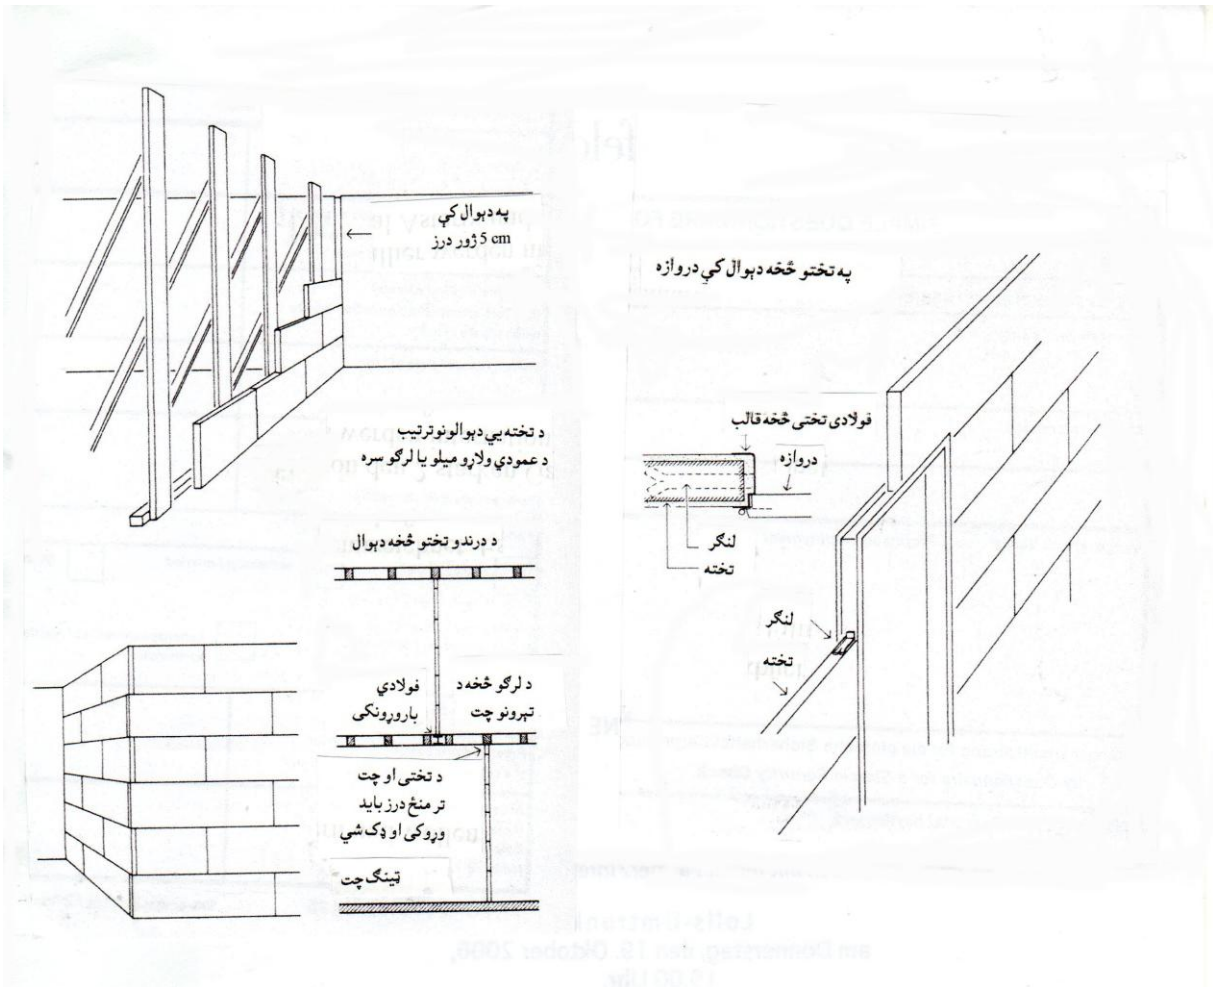 په دېوال کې
5 cm ژور درز
د تخته يي دېوالونو ترتيب
د عمودي ولاړو ميلو يا لرګو سره
د درندو تختو څخه دېوال
فولادي
باروړونکی
د لرګو څخه د
تېرونو چت
د تختی او چت
تر منځ درز بايد
وړوکی او ډک شي
ټينګ چت
په تختو څخه دېوال کې دروازه
فولادی تختی څخه قالب
دروازه
لنګر
تخته
لنګر
تخته